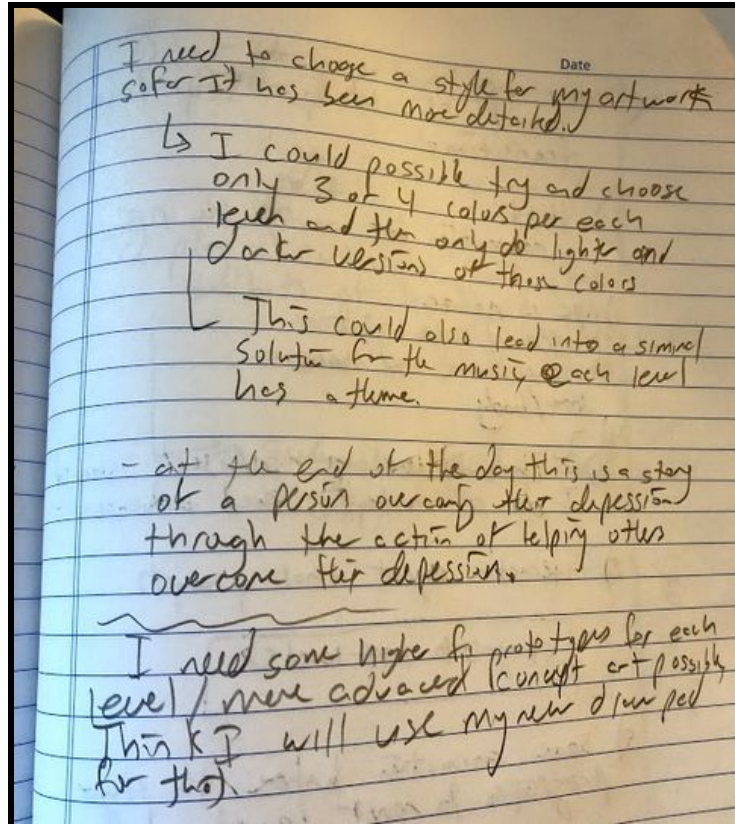 Date
I need to choose a style for my artwork
sofar It has been more detailed.
↳ I could possible try and choose
only 3 or 4 colors per each
level and then only do lighter and
darker versions of these colors
This could also lead into a similar
solution for the music, each level
has a theme.
- at the end of the day this is a story
of a person overcoming their depression
through the action of helping others
overcome their depression.
I need some higher fi prototypes for each
level / more advaced concept art possible
Think I will use my new draw pad
for this.